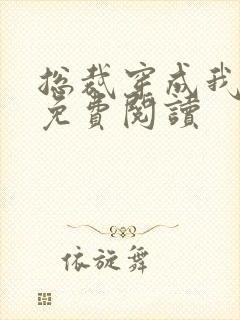 总裁穿成我
免费閱讀
依旋舞